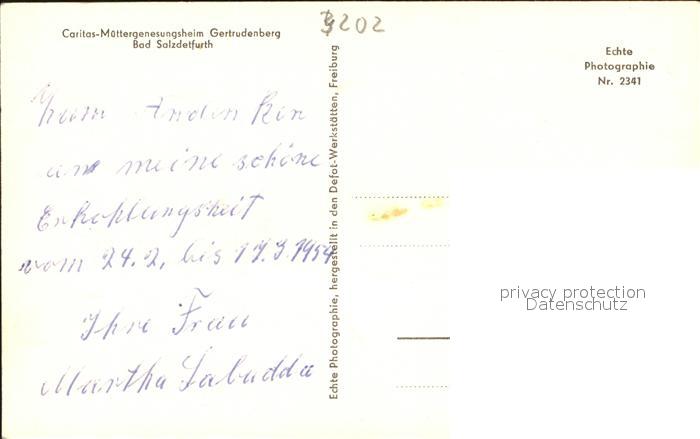 Caritas-Müttergenesungsheim Gertrudenberg
Bad Salzdetfurth
3202
Echte
Photographie
Nr. 2341
Zum Andenken
an meine schöne
Erhohlungszeit
vom 24.2. bis 17.3.1954
Ihre Frau
Martha Labudda
Echte Photographie, hergestellt in den Defot-Werkstätten, Freiburg
privacy protection
Datenschutz